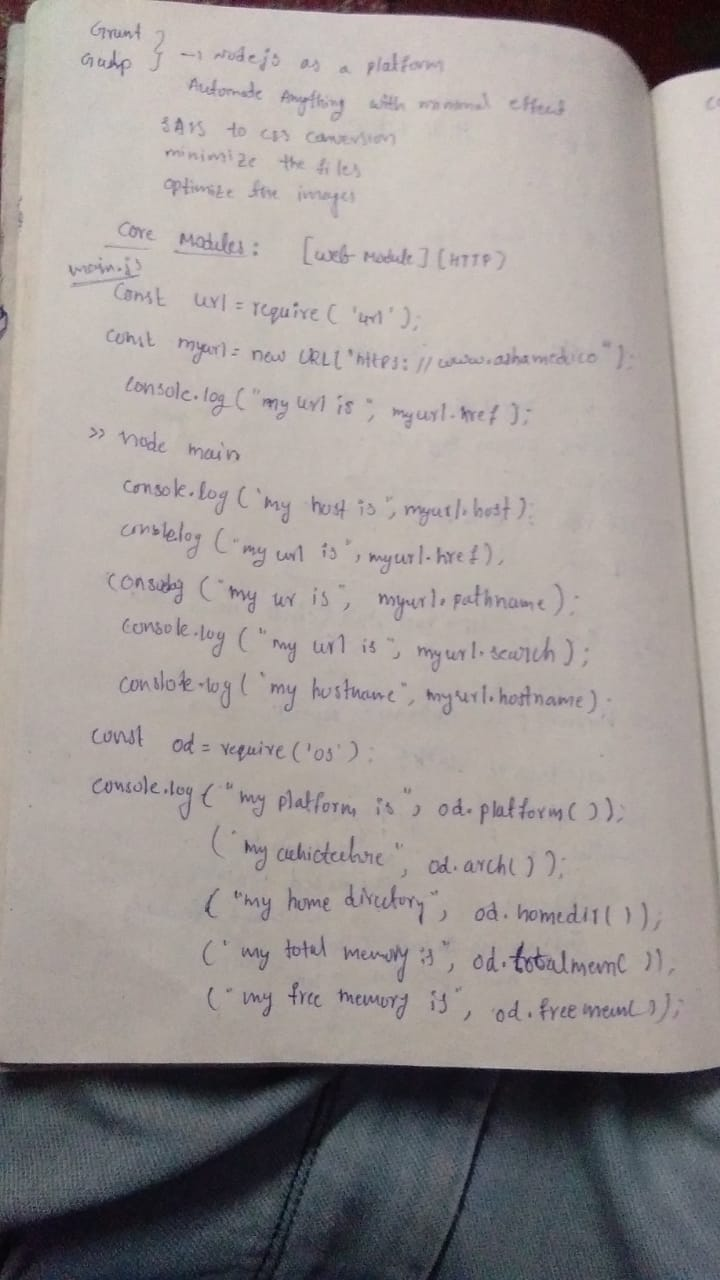 Grunt
Gulp } → Nodejs as a platform
Automate Anything with minimal effect
SASS to css conversion
minimize the files
optimize the images
Core Modules: [Web Module] [HTTP]
main.js
Const url = require( 'url' );
const myurl = new URL("https://www.ashamedico");
console.log("my url is", myurl.href);
>> node main
console.log("my host is", myurl.host);
console.log("my url is", myurl.href),
console.log("my ur is", myurl.pathname);
console.log("my url is", myurl.search);
console.log("my hostname", myurl.hostname);
const od = require('os');
console.log("my platform is", od.platform());
("my", od.arch());
("my home directory", od.homedir());
("my total memory is", od.totalmem()),
("my free memory is", od.freemem());